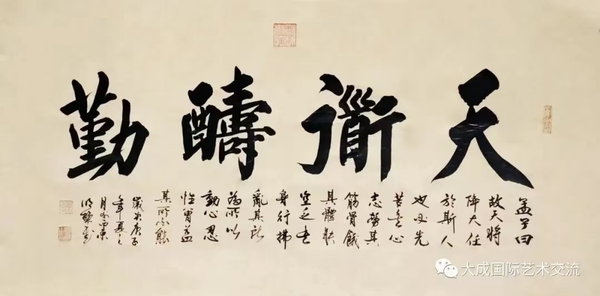 天衜醻勤
孟子曰
故天將
降大任
於斯人
也必先
苦其心
志勞其
筋骨餓
其體膚
空乏其
身行拂
亂其所
為所以
動心忍
性曾益
其所不能
歲次庚子
年夏之
大成国际艺术交流